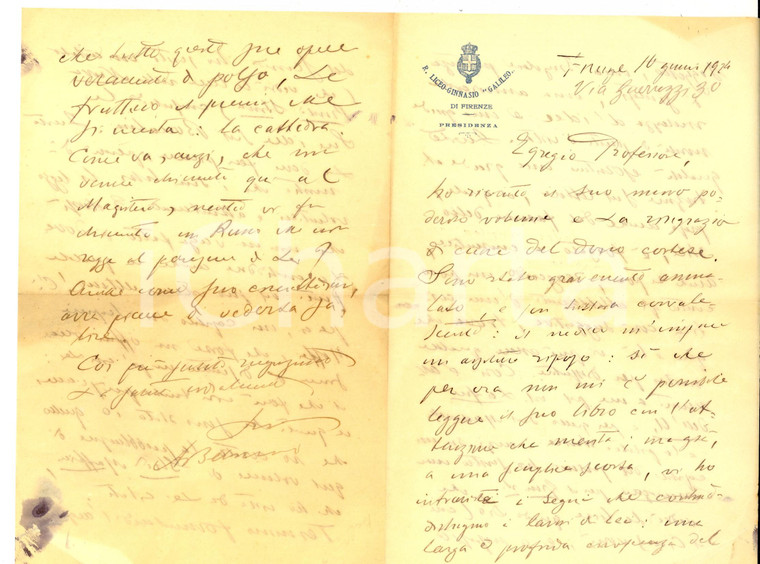 R. LICEO-GINNASIO "GALILEO"
DI FIRENZE
PRESIDENZA
Firenze 16 1926
Via Guerrazzi 30
Egregio Professore,
ho ricevuto il Suo nuovo po-
deroso volume e La ringrazio
di cuore del dono cortese.
Sono stato gravemente amma-
lato, e son tuttora convale-
scente: il medico m'impone
un assoluto riposo: sì che
per ora non mi è possibile
leggere il Suo libro con l'at-
tenzione che merita; ma già,
a una semplice scorsa, vi ho
intraviste i segni che contrad-
distinguono i lavori di Lei: una
larga e profonda conoscenza del
che tutte queste Sue opere
veramente di polso, Le
fruttino il premio che
si merita: la cattedra.
Come va, anzi, che non
venne chiamato qui al
Magistero, mentre vi fu
chiamato un Russo che non
regge al paragone di Lei?